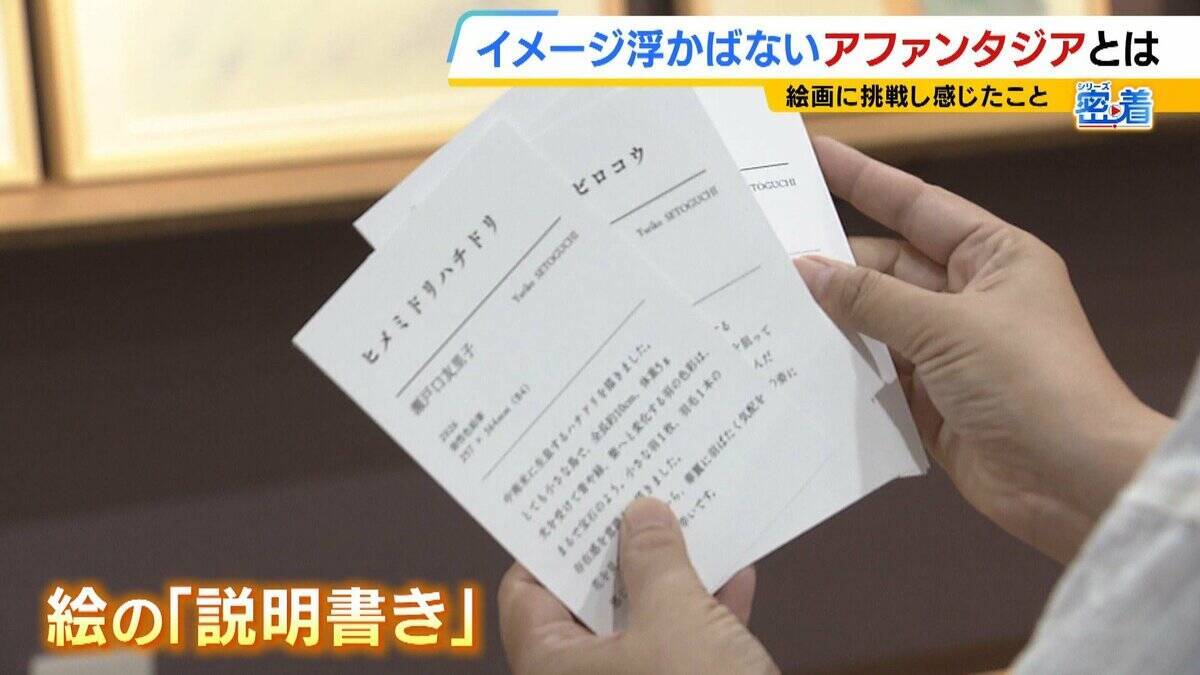 イメージ浮かばないアファンタジアとは
絵画に挑戦し感じたこと
シリーズ
密着
ヒメミドリハチドリ
Yuriko SETOGUCHI
瀬戸口友里子
2026
油性色鉛筆
257 × 364mm (B4)
中南米に生息するハチドリを描きました。
とても小さな鳥で、全長約10cm、体重5g
光を受けて青や緑、紫へと変化する羽の色彩は、
まるで宝石のよう。小さな羽1枚、羽毛1本の
存在感を意識
きました。
ら、華麗に羽ばたく気配を
幸いです。
ビロコウ
Yuriko SETOGUCHI
TOGUCHI
絵の「説明書き」